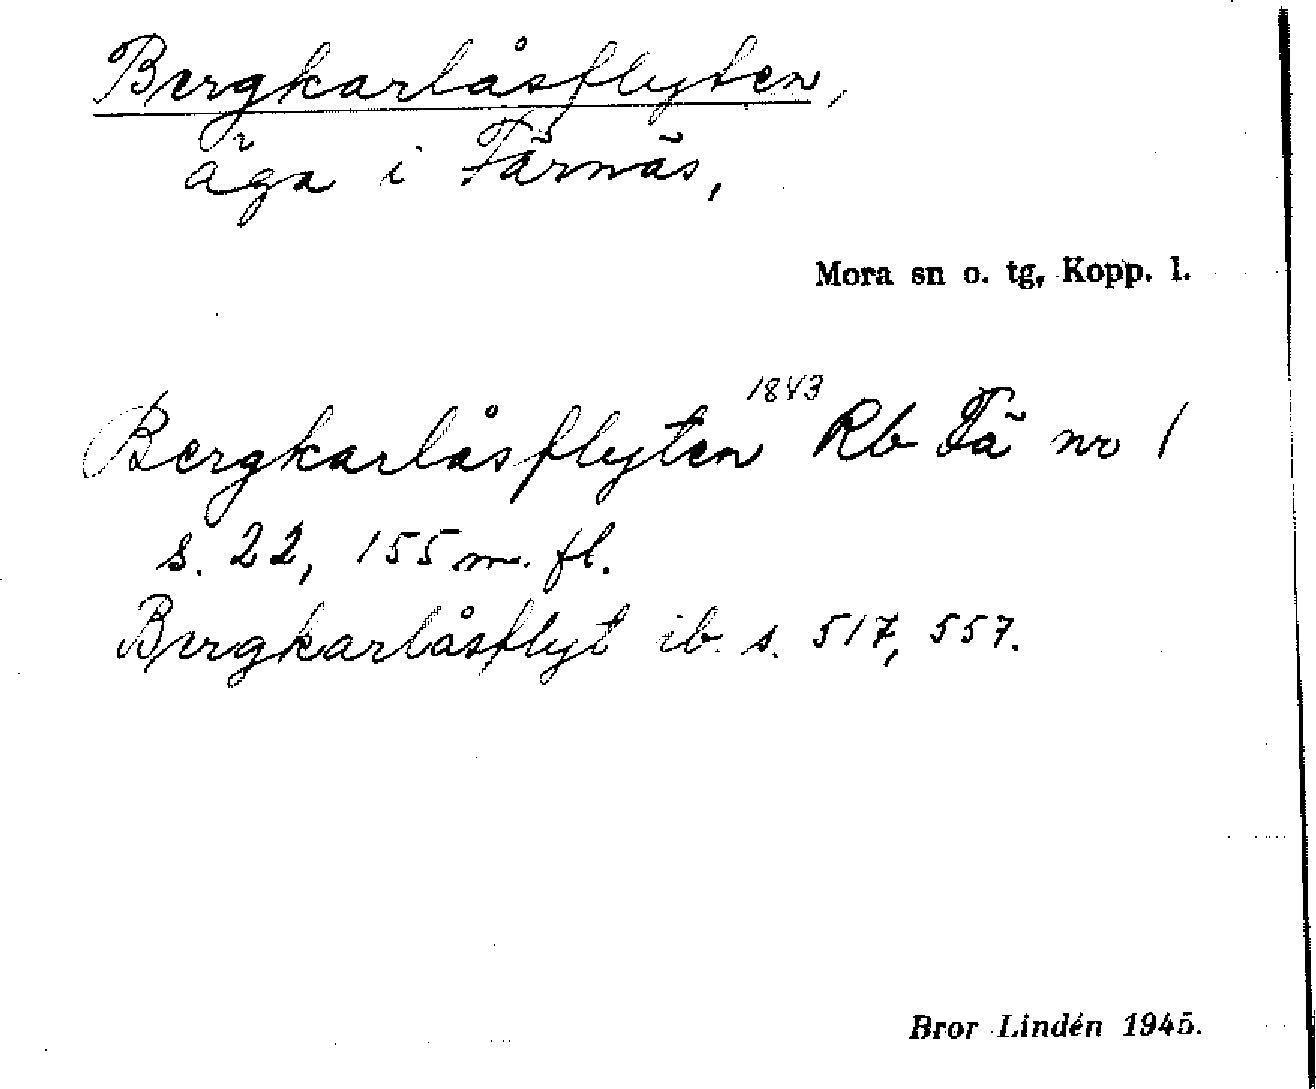 Bergkarlåsflyten,
äga i Färnäs,
Mora sn o. tg, Kopp. l.
Bergkarlåsflyten 1843 Rb Fä nr 1
s. 22, 155 m. fl.
Bergkarlåsflyt ib. s. 517, 557.
Bror Lindén 1945.